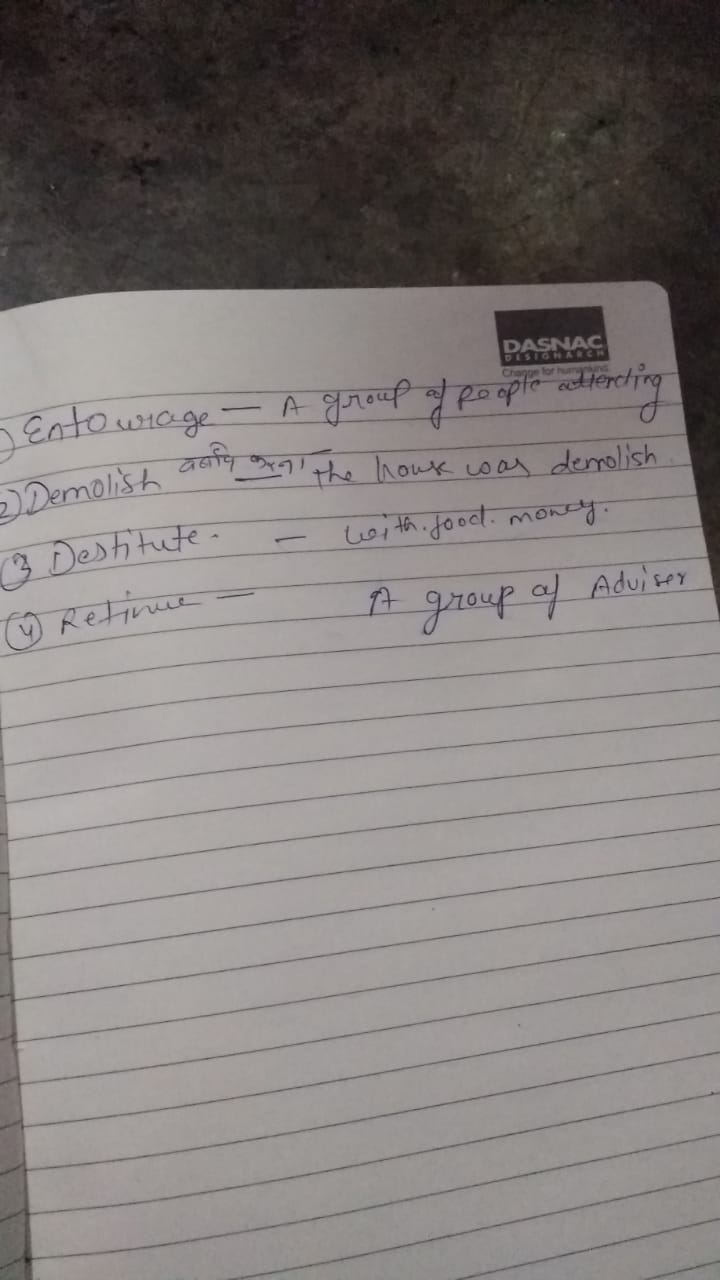 DASNAC
DESIGNARCH
Change for humankind
1) Entourage — A group of people attending
2) Demolish करना। the house was demolish
③ Destitute. — with.food. money.
④ Retinue — A group of Adviser